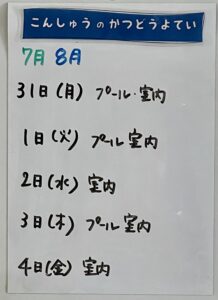 こんしゅうのかつどうよてい
7月 8月
31日(月) プール・室内
1日(火) プール 室内
2日(水) 室内
3日(木) プール 室内
4日(金) 室内